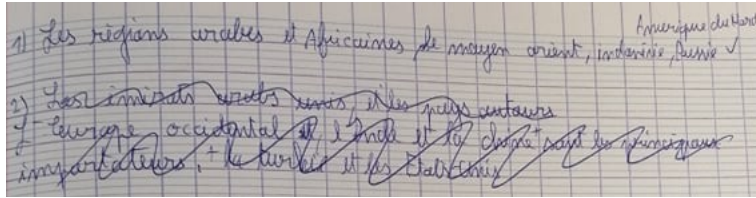 Amérique du Nord
1) Les régions arabes et Africaines de moyen orient, indonésie, Russie ✓
2) Les émirats arabs unis, et les pays autours
L'europe occidental et, l'Inde et la chine sont les principaux
importateurs, + la turkie et les états unis